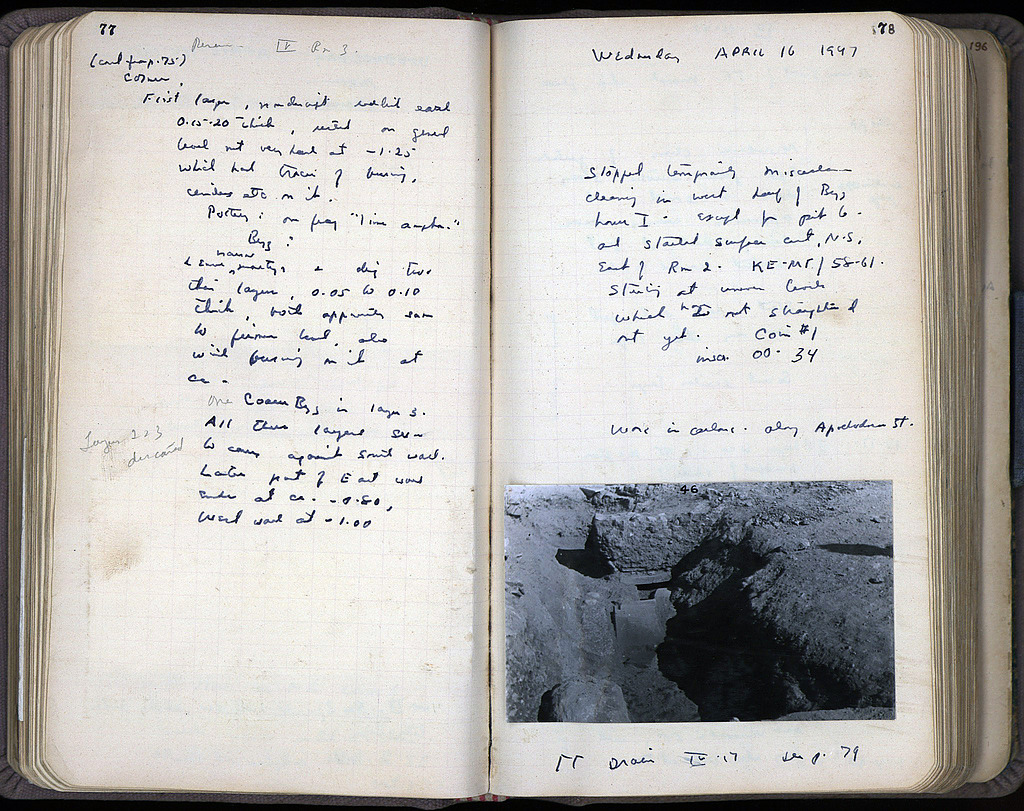 77
IV Rm 3.
(cont. from p. 75)
Corner,
First layer,
0.15-20 thick, rested on general
level not very hard at -1.25
which had traces of burning,
cinders etc on it.
Pottery: on frag "lime ampho."
Byz:
narrow
two
thin layers, 0.05 to 0.10
thick, both apparently
to firmer level, also
with burning on it at
ca -
One Coarse Byz in layer 3.
All three layers seem
to come against South wall.
Layers 2 & 3
discarded
Later part of East wall
ends at ca. -0.80,
West wall at -1.00
78
196
Wednesday APRIL 16 1947
Stopped temporarily miscellan
cleaning in west half of Byz
house I. Except for pit 6.
and started surface cut, N-S,
East of Rm 2. KE-MT/58-61.
at uneven levels
which I'd not straightened
out yet. Coin #1
misc. 00-34
Work in along Apostolou St.
46
TT Drain IV.17 See p. 79